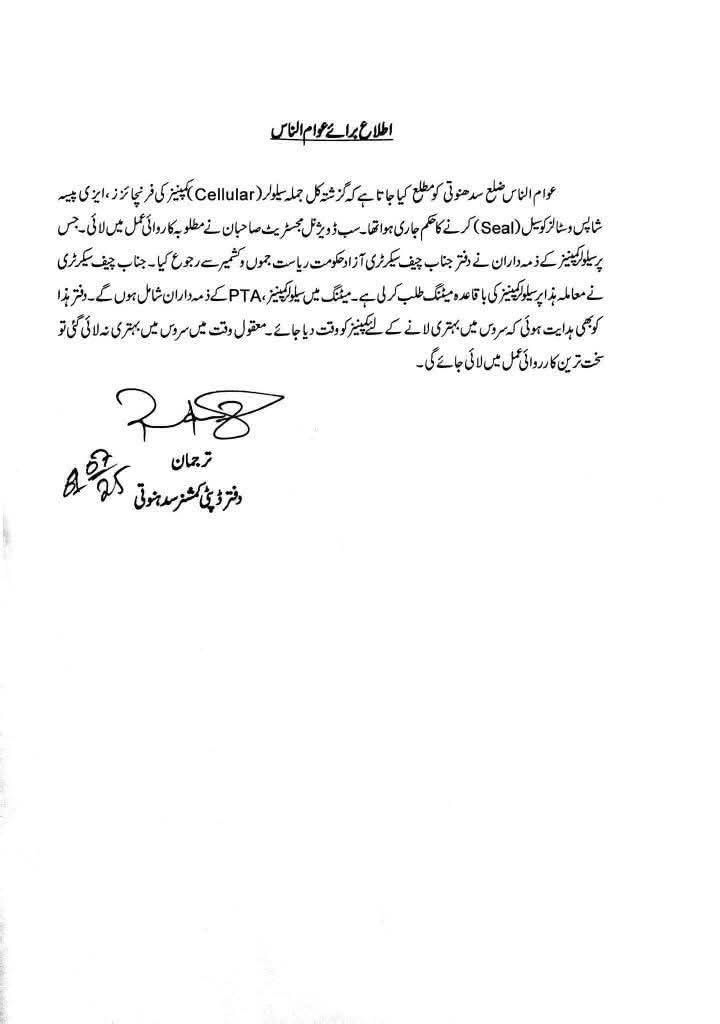 اطلاع برائے عوام الناس
عوام الناس ضلع سدھنوتی کو مطلع کیا جاتا ہے کہ گزشتہ کل جملہ سیلولر (Cellular) کمپنیز کی فرنچائزز، ایزی پیسہ
شاپس و سٹالز کو سیل (Seal) کرنے کا حکم جاری ہوا تھا۔ سب ڈویژنل مجسٹریٹ صاحبان نے مطلوبہ کاروائی عمل میں لائی۔ جس
پر سیلولر کمپنیز کے ذمہ داران نے دفتر جناب چیف سیکرٹری آزاد حکومت ریاست جموں و کشمیر سے رجوع کیا۔ جناب چیف سیکرٹری
نے معاملہ ہذا پر سیلولر کمپنیز کی باقاعدہ میٹنگ طلب کر لی ہے۔ میٹنگ میں سیلولر کمپنیز، PTA کے ذمہ داران شامل ہوں گے۔ دفتر ہذا
کو بھی ہدایت ہوئی کہ سروس میں بہتری لانے کے لئے کمپنیز کو وقت دیا جائے۔ معقول وقت میں سروس میں بہتری نہ لائی گئی تو
سخت ترین کارروائی عمل میں لائی جائے گی۔
ترجمان
دفتر ڈپٹی کمشنر سدہنوتی